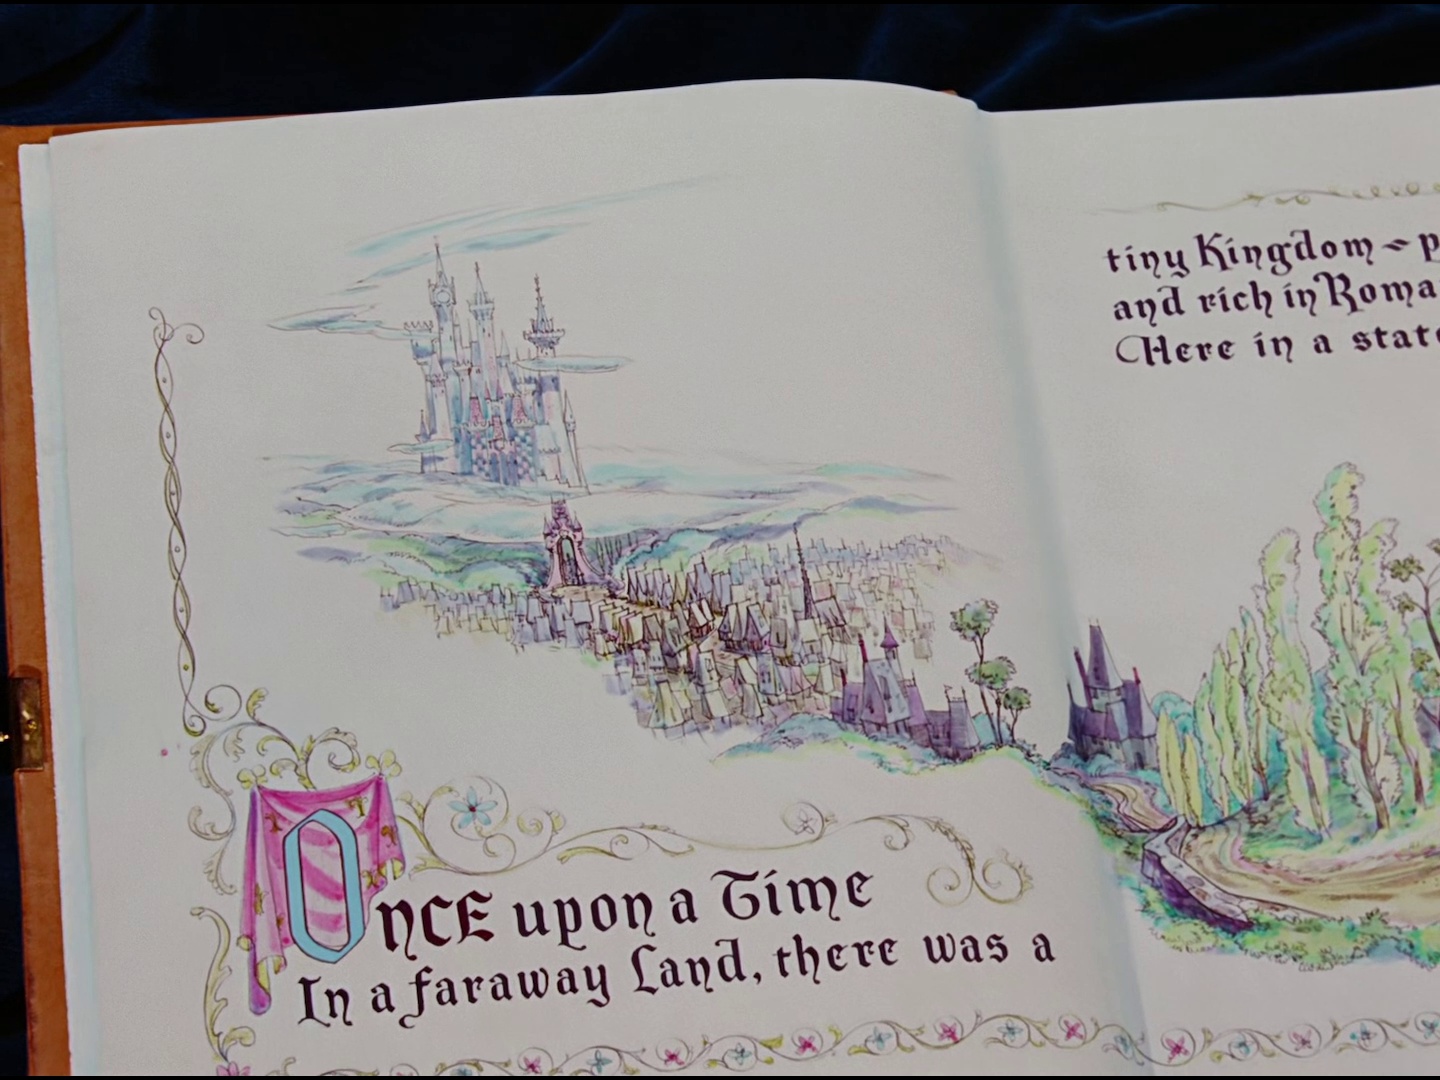 ONCE upon a Time
In a faraway Land, there was a
tiny Kingdom ~ p
and rich in Roma
Here in a state